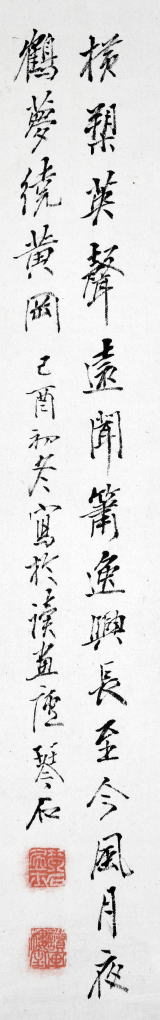 横槊英聲遠聞簫逸興長至今風月夜
鶴夢繞黄岡 己酉初冬寫於讀畫廬 琴石